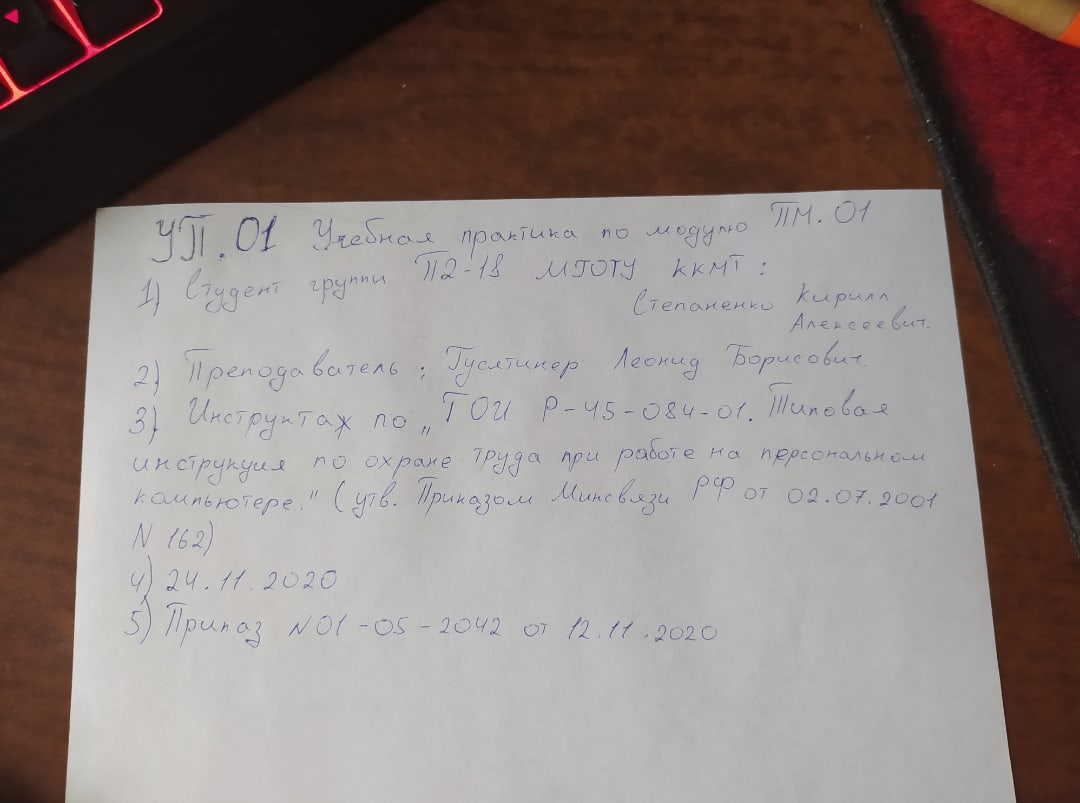 УП.01 Учебная практика по модулю ПМ.01
1) Студент группы П2-18 МГОТУ ККМТ:
Степаненко Кирилл
Алексеевич.
2) Преподаватель: Гусятинер Леонид Борисович.
3) Инструктаж по „ТОИ Р-45-084-01. Типовая
инструкция по охране труда при работе на персональном
компьютере." (утв. Приказом Минсвязи РФ от 02.07.2001
N 162)
4) 24.11.2020
5) Приказ N01-05-2042 от 12.11.2020